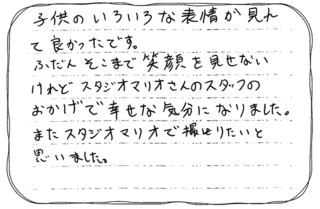 子供のいろいろな表情が見れ
て良かったです。
ふだんそこまで笑顔を見せない
けれどスタジオマリオさんのスタッフの
おかげで幸せな気分になりました。
またスタジオマリオで撮りたいと
思いました。